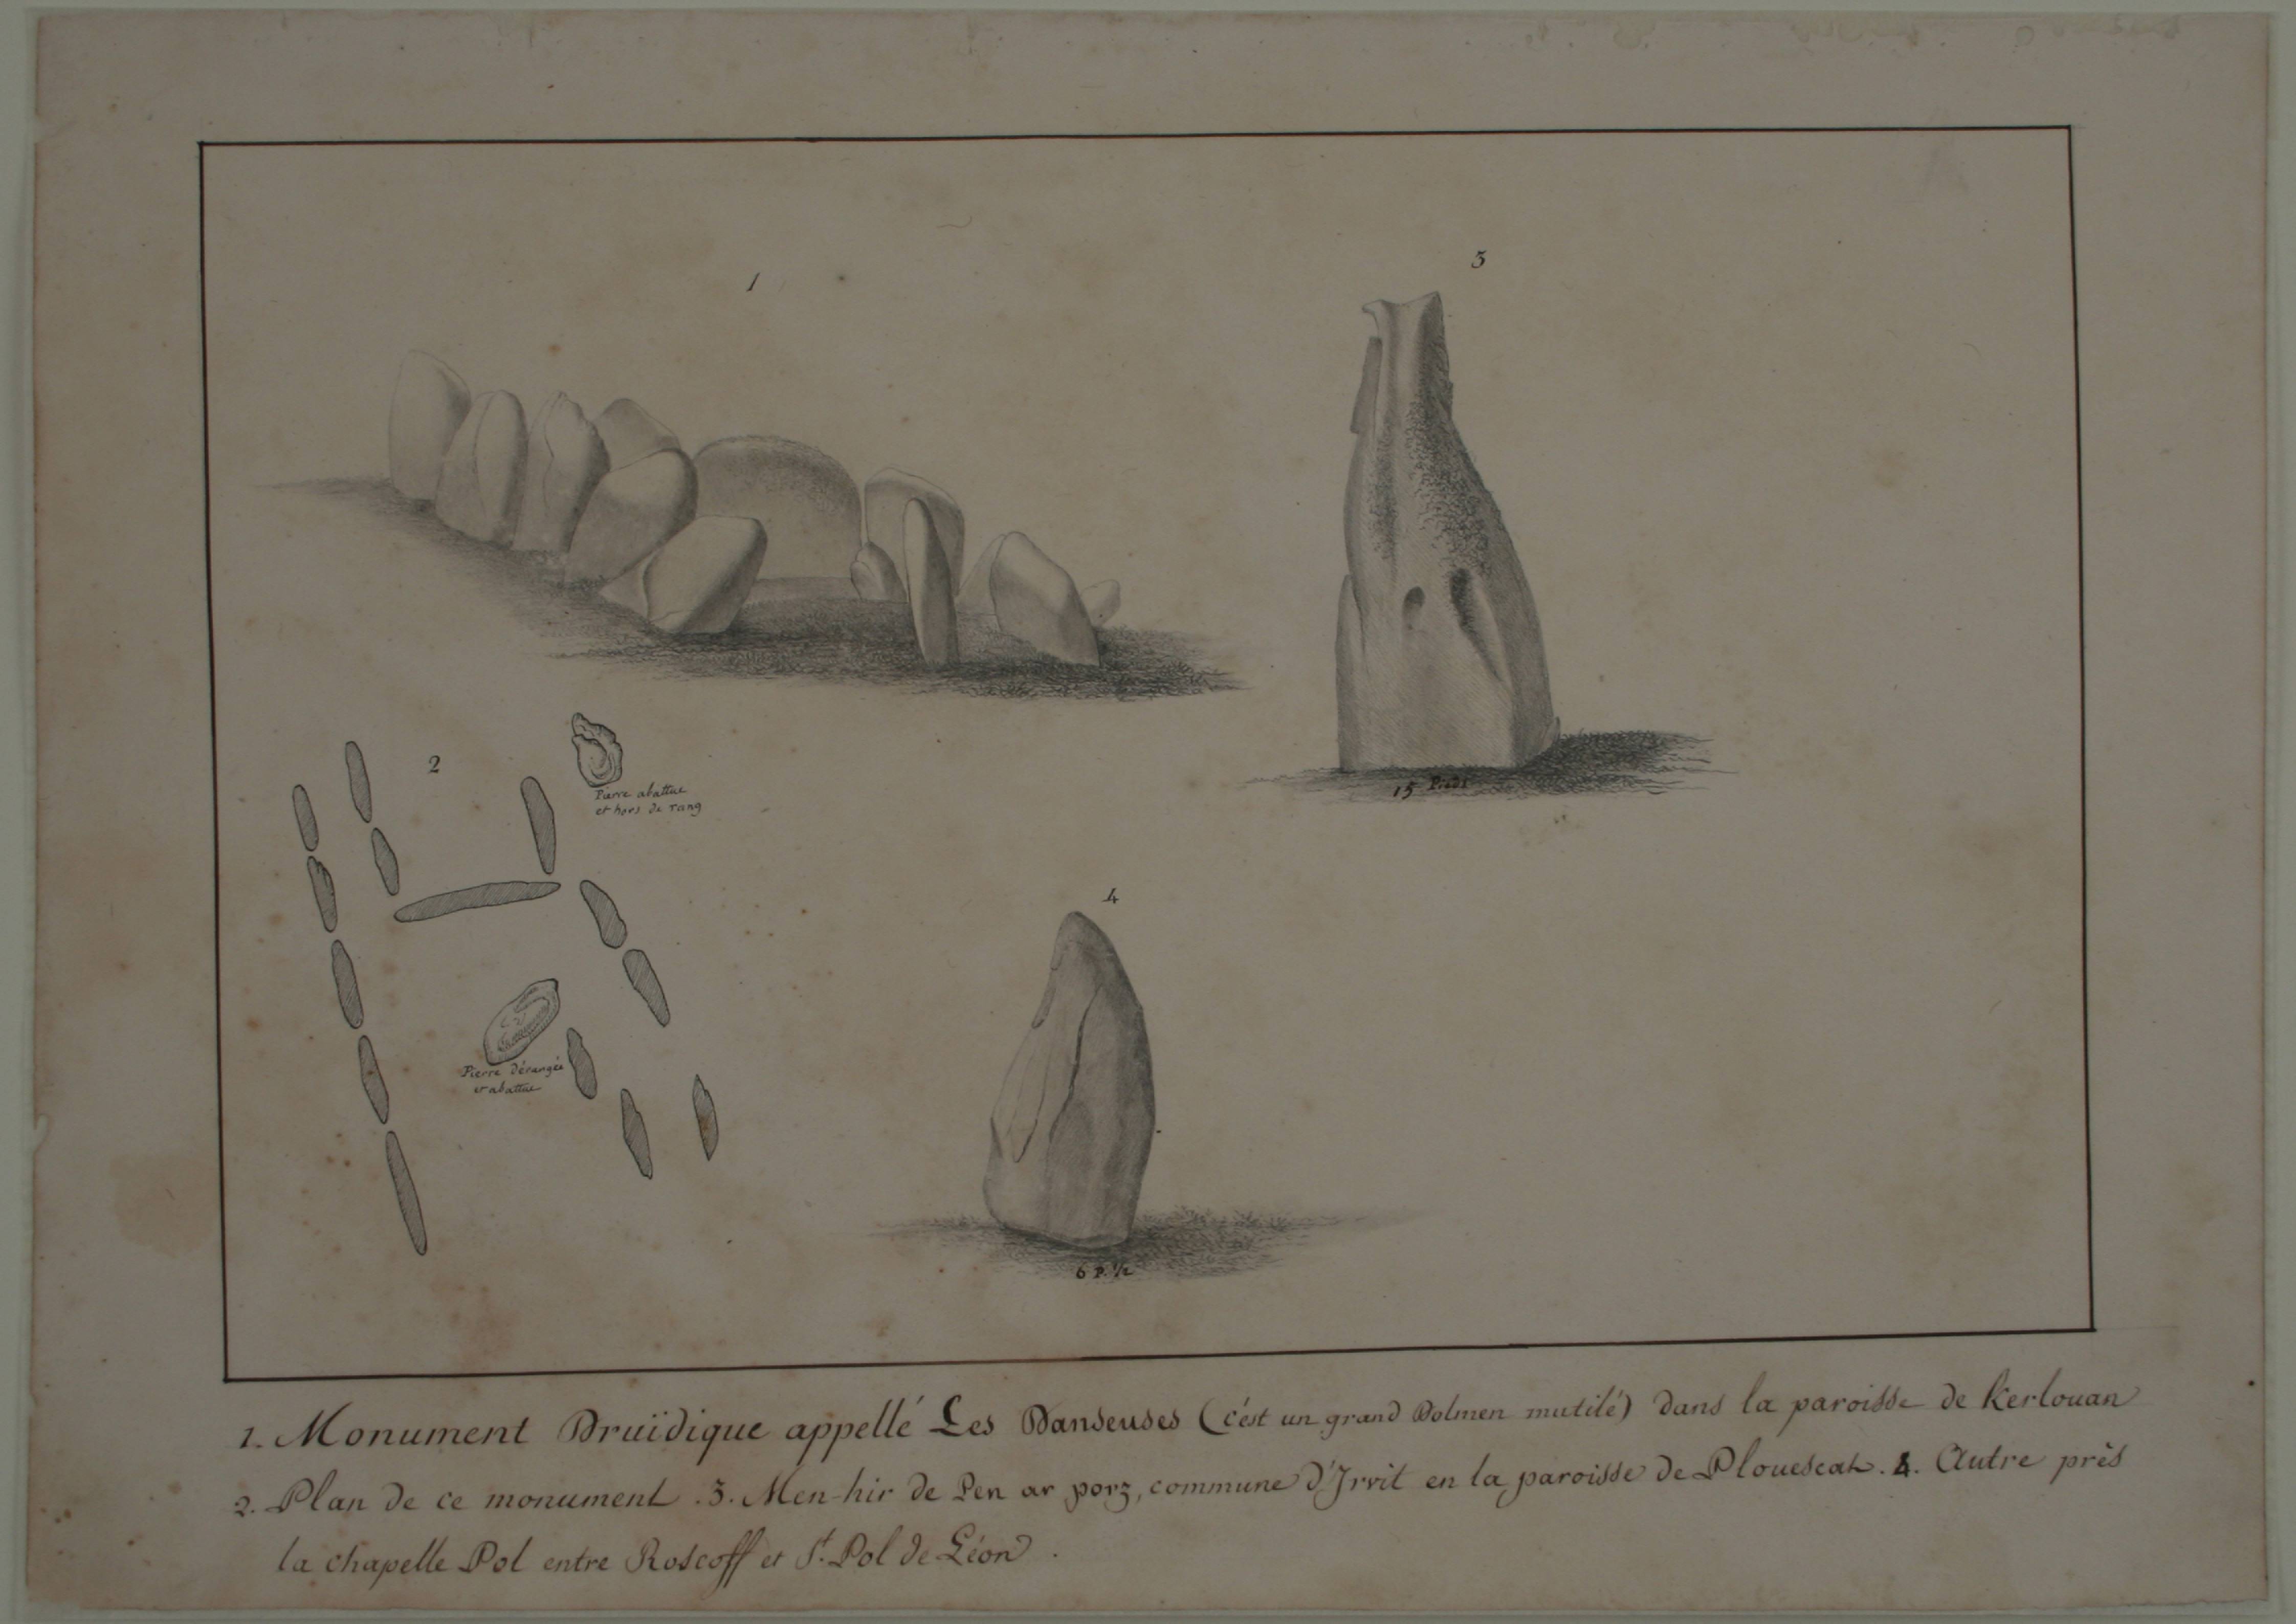 1
3
2
Pierre abattue
et hors de rang
15 Pieds
4
Pierre dérangée
et abattue
6 P. 1/2
1. Monument Druïdique appellé Les Danseuses (c'ést un grand Dolmen mutilé) dans la paroisse de Kerlouan
2. Plan de ce monument . 3. Men-hir de Pen ar porz, commune d'Irvit en la paroisse de Plouescat . 4. Autre près
la chapelle Pol entre Roscoff et St. Pol de Léon .